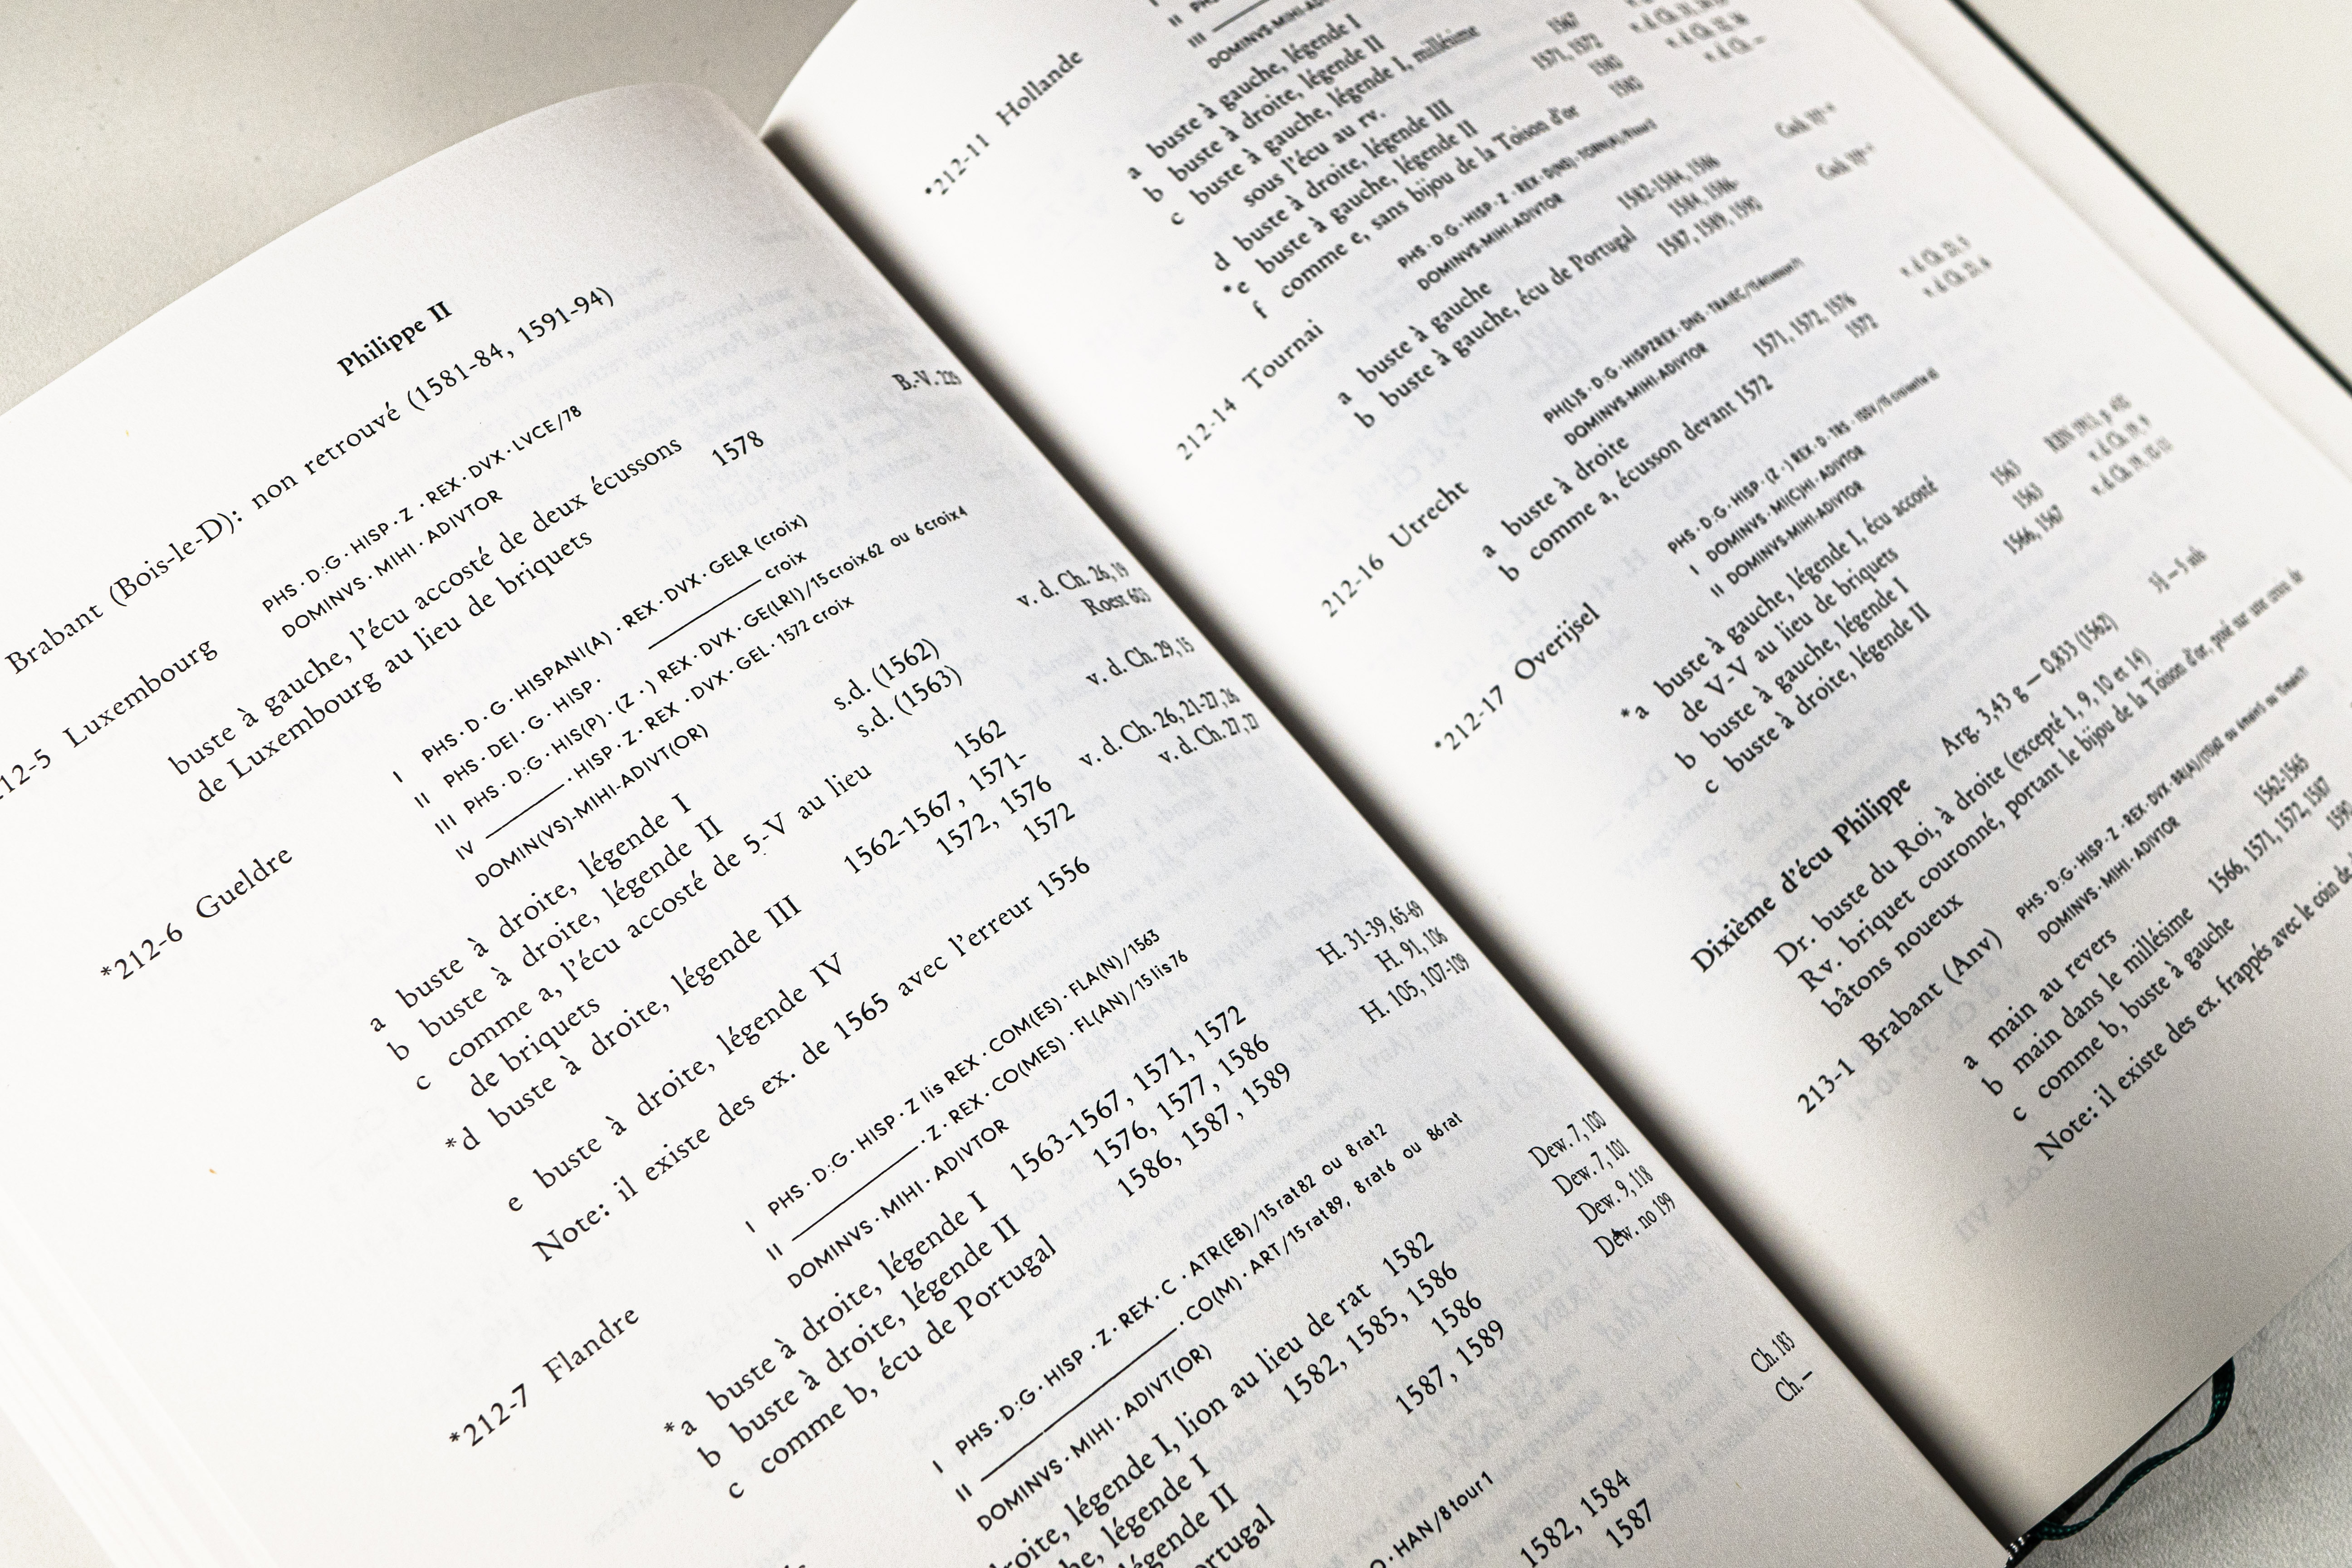 Philippe II
Brabant (Bois-le-D): non retrouvé (1581-84, 1591-94)
212-5 Luxembourg PHS · D:G · HISP · Z · REX · DVX · LVCE/78
DOMINVS · MIHI · ADIVTOR
buste à gauche, l'écu accosté de deux écussons 1578 B.-V. 229
de Luxembourg au lieu de briquets
*212-6 Gueldre I PHS · D · G · HISPANI(A) · REX · DVX · GELR (croix)
II PHS · DEI · G · HISP · ——— croix
III PHS · D:G · HIS(P) · (Z · ) REX · DVX · GE(LRI)/15 croix 62 ou 6 croix 4
IV ——— · HISP · Z · REX · DVX · GEL · 1572 croix
DOMIN(VS)-MIHI-ADIVT(OR)
a buste à droite, légende I s.d. (1562) v. d. Ch. 26, 19
b buste à droite, légende II s.d. (1563) Roest 603
c comme a, l'écu accosté de 5-V au lieu
de briquets 1562 v. d. Ch. 29, 15
*d buste à droite, légende III 1562-1567, 1571-
1572, 1576 v. d. Ch. 26, 21-27, 26
e buste à droite, légende IV 1572 v. d. Ch. 27, 27
Note: il existe des ex. de 1565 avec l'erreur 1556
*212-7 Flandre I PHS · D:G · HISP · Z lis REX · COM(ES) · FLA(N)/1563
II ——— · Z · REX · CO(MES) · FL(AN)/15 lis 76
DOMINVS · MIHI · ADIVTOR
*a buste à droite, légende I 1563-1567, 1571, 1572 H. 31-39, 65-69
b buste à droite, légende II 1576, 1577, 1586 H. 91, 106
c comme b, écu de Portugal 1586, 1587, 1589 H. 105, 107-109
I PHS · D:G · HISP · Z · REX · C · ATR(EB)/15 rat 82 ou 8 rat 2
II ——— · CO(M) · ART/15 rat 89, 8 rat 6 ou 86 rat
DOMINVS · MIHI · ADIVT(OR)
droite, légende I, lion au lieu de rat 1582 Dew. 7, 100
légende I 1582, 1585, 1586 Dew. 7, 101
légende II 1586 Dew. 9, 118
Portugal 1587, 1589 Dew. no 199
HAN/8 tour 1
1582, 1584 Ch. 183
1587 Ch. –
*212-11 Hollande
II
III
DOMINVS-MIHI-
a buste à gauche, légende I 1567
b buste à droite, légende II 1571, 1572
c buste à gauche, légende I, millésime
sous l'écu au rv. 1580
d buste à droite, légende III 1580
*e buste à gauche, légende II
f comme e, sans bijou de la Toison d'or
212-14 Tournai PHS · D:G · HISP · Z · REX · D(NS) · TORN(A)
DOMINVS-MIHI-ADIVTOR
a buste à gauche 1582-1584, 1586
b buste à gauche, écu de Portugal 1584, 1586-
1587, 1589, 1590
212-16 Utrecht PH(L)S · D:G · HISPZREX · DNS · TRAIEC
DOMINVS-MIHI-ADIVTOR
a buste à droite 1571, 1572, 1576
b comme a, écusson devant 1572 1572
*212-17 Overijsel PHS · D:G · HISP · (Z · ) REX · D · TRS · ISSV
I DOMINVS · MI(C)HI · ADIVTOR
II DOMINVS-MIHI-ADIVTOR
*a buste à gauche, légende I, écu accosté
de V-V au lieu de briquets 1563
b buste à gauche, légende I 1563
c buste à droite, légende II 1566, 1567
Dixième d'écu Philippe Arg. 3,43 g — 0,833 (1562)
Dr. buste du Roi, à droite (excepté 1, 9, 10 et 14)
Rv. briquet couronné, portant le bijou de la Toison d'or, posé sur une croix de
bâtons noueux
213-1 Brabant (Anv) PHS · D:G · HISP · Z · REX · DVX · BR(A)
DOMINVS · MIHI · ADIVTOR
a main au revers 1562-1565
b main dans le millésime 1566, 1571, 1572, 1587
c comme b, buste à gauche 1590
Note: il existe des ex. frappés avec le coin de